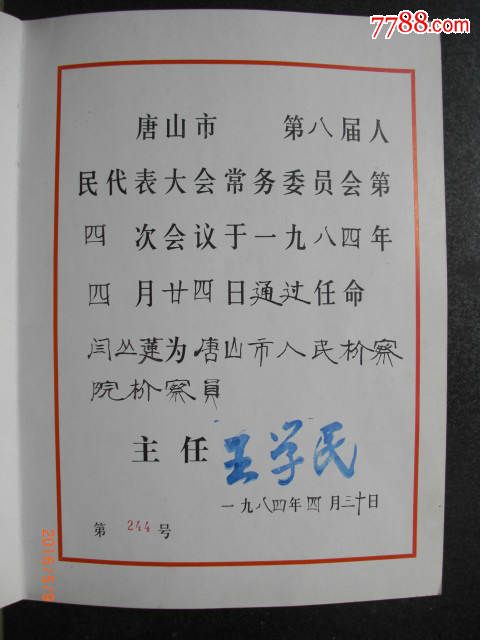 7788.com
唐山市 第八届人
民代表大会常务委员会第
四 次会议于一九八四年
四 月廿四日通过任命
闫丛莲为唐山市人民检察
院检察员
主任 王学民
一九八四年四月三十日
第 244 号
2016/5/8